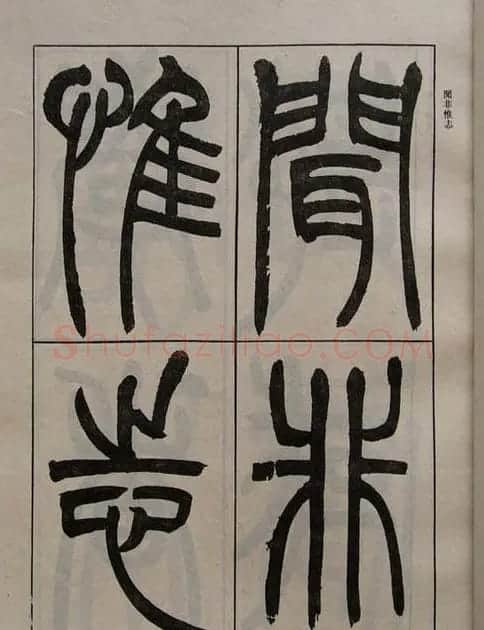 聞非惟志
聞非
惟志
Shufaziliao.COM